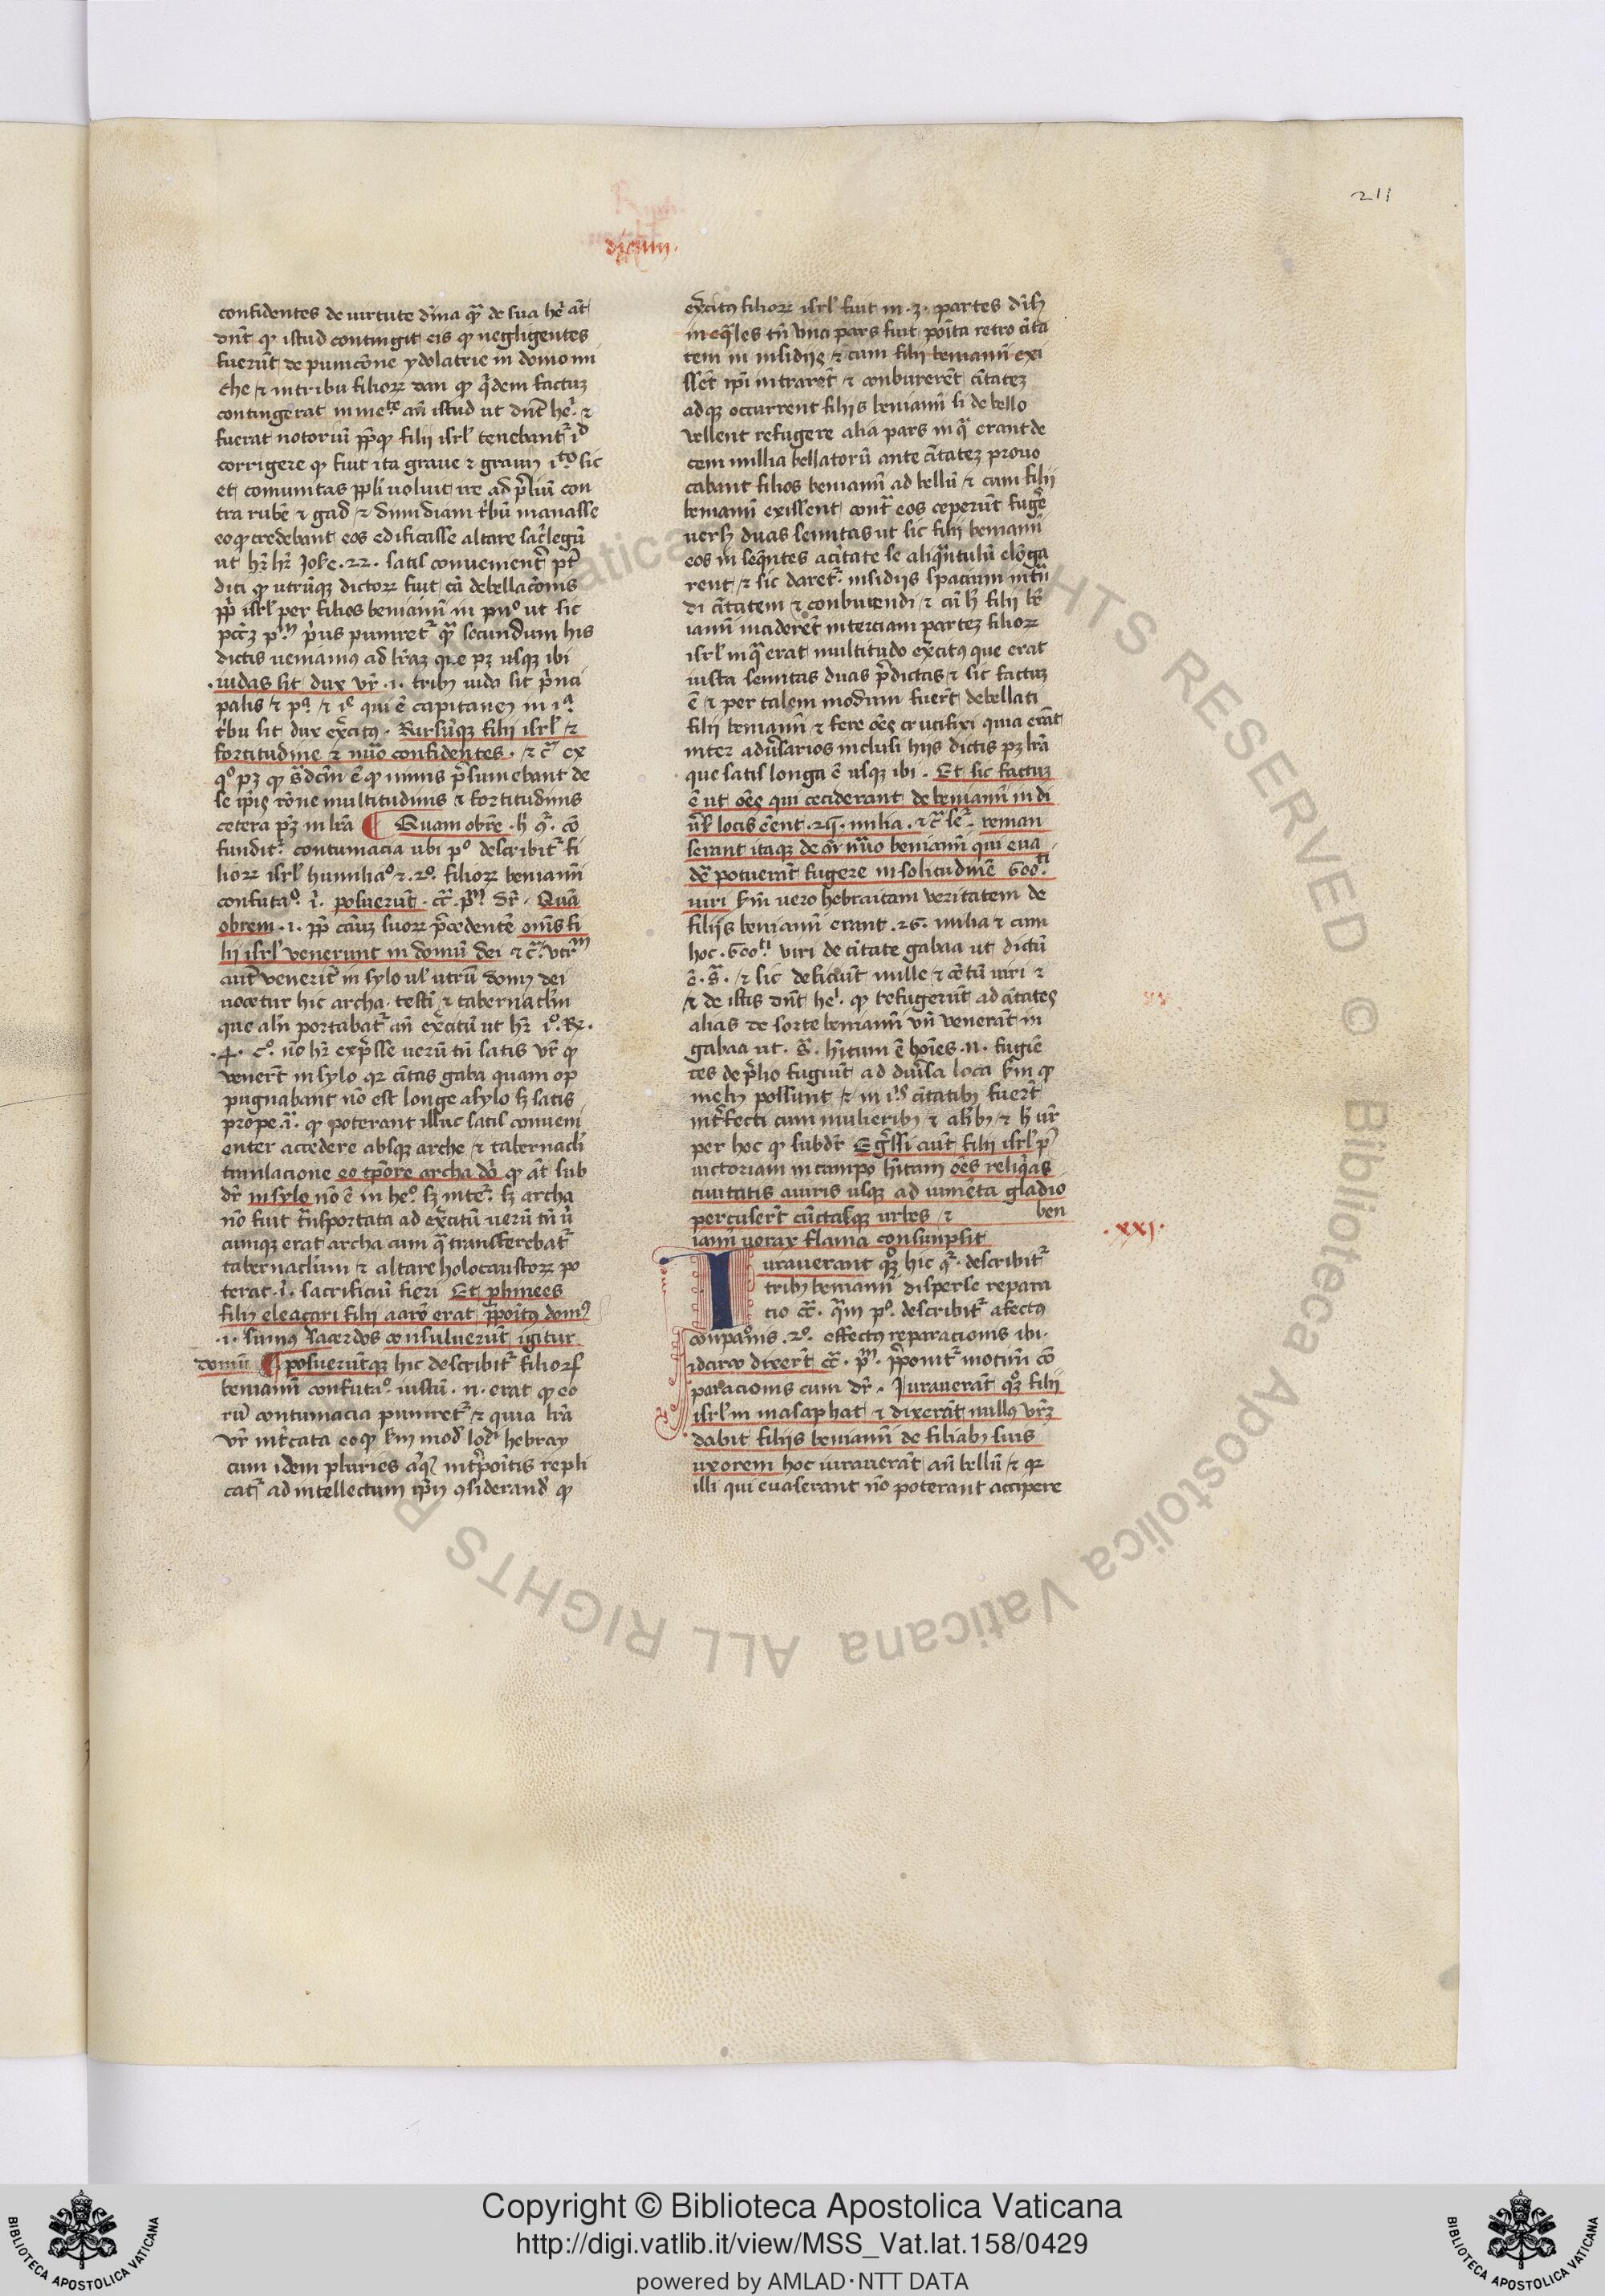 211
dicum.
confidentes de uirtute dīna qͣ de sua he᷑ at̄
dn̄t qͥ istud contingit eis qͥ negligentes
fuerūt de punicōne ydolatrie in domo mi
che ⁊ in tribu filioꝝ dan qͥ qͥdem factuꝫ
contingerat an̄ istud ut dn̄t he᷑. ⁊
fuerat notoriū filii isrl᷑ tenebant᷑
corrigere qͥ fuit ita graue ⁊ sic
et comunitas ppl᷑i uoluit ire ad p̄liū con
tra rubē ⁊ gad ⁊ dimidiam t᷑bū manasse
eo qͥ credebant eos edificasse altare sac᷑legū
ut hꝫ Iosue .22. satis conuenient᷑ pt᷑
dici qͥ utrūqꝫ dictoꝝ fuit cā debellacōnis
pp̄ isrl᷑ per filios beniamī in pn̊ ut sic
p᷑us puniret᷑ qͣ secundum his
dictis ueniamus ad lr̄aꝫ que pꝫ usqꝫ ibi
.iudas sit dux vr̄ .i. tribꝰ iuda sit p᷑nci
palis qui ē capitaneꝰ in
t᷑bu sit dux ex᷑citꝰ. Rursūqꝫ filii isrl᷑ ⁊
fortitudine ⁊ nūo confidentes. ⁊ c᷑ ex
qͦ pꝫ qͥ ē qͥ nimis p᷑sumebant de
se ip̄is rōne multitudinis ⁊ fortitudinis
cetera pꝫ in lr̄a ¶ Quam obrē . cō
fundit᷑ contumacia ubi pͦ describit᷑ fi
lioꝝ isrl᷑ humiliaͦ ⁊ .2ͦ. filioꝝ beniamī
confutaͦ. ī. posuerūt . dr̄. Quā
obrem .i. pp̄ suoꝝ p᷑cedentē om̄s fi
lii isrl᷑ venerunt in domū dei ⁊ c᷑ vtr̄
aut᷑ venerīt in sylo ul᷑ utrū domꝰ dei
uocetur hic archa testī ⁊ tabernacl᷑m
que al᷑n portabat᷑ an̄ ex᷑citū ut hꝫ 1ͦ. Rꝫ.
.4. cͦ. nō hꝫ exp᷑sse uerū tn̄ satis vr̄ qͥ
venerūt in sylo qꝛ ciūtas gaba quam op
pugnabant nō est longe a sylo sꝫ satis
prope .ī. qͥ poterant illuc satis conueni
enter accedere absqꝫ arche ⁊ tabernacl᷑i
translacione eo tp̄ore archa dō qͥ at̄ sub
dr̄ in sylo nō ē in heͦ. sꝫ int᷑. sꝫ archa
nō fuit t᷑nsportata ad ex᷑citū uerū tn̄ u᷑
cumqꝫ erat archa cum qͣ transferebat᷑
tabernacl᷑um ⁊ altare holocaustoꝝ po
terat .ī. sacrificiū fieri Et phinees
filiꝰ eleazari filii aarō erat p᷑poitꝰ domꝰ
.i. sūmꝰ sacerdos consuluerūt igitur
domū ¶ posuerūtqꝫ hic describit᷑ filioꝝ
beniamī confutaͦ. iustū .n. erat qͥ eo
rū contumacia puniret᷑ ⁊ quia lr̄a
vr̄ int᷑cata eo qͥ sm̄ modū hebray
cum idem pluries repli
cat᷑ ad intellectum ip̄iꝰ ꝯsiderandū qͥ
ex᷑citꝰ filioꝝ isrl᷑ fuit in .3. partes diuisꝰ
in eqͣles tn̄ una pars fuit poīta retro ciūta
tem in insidijs ⁊ cum filij beniamī exi
ssēt ip̄i intrarēt ⁊ conburerēt ciūtateꝫ
adqꝫ occurrent filijs beniamī si de bello
vellent refugere alia pars in qͣ erant de
cem millia bellatorū ante ciūtateꝫ prouo
cabant filios beniamī ad bellū ⁊ cum filij
beniamī exissent cont᷑ eos ceperūt fuge᷑
uersꝰ duas semitas ut sic filij beniamī
eos insequētes a ciūtate se aliqͣntulū elōga
rent ⁊ sic daret᷑ insidijs spacium int᷑n
di ciūtatem ⁊ conburendi ⁊ cū hꝰ filij bē
iamī inciderēt in terciam parteꝫ filioꝝ
isrl᷑ in qͣ erat multitudo ex᷑citꝰ que erat
iusta semitas duas p᷑dictas ⁊ sic factuꝫ
ē ⁊ per talem modum fuerūt debellati
filij beniamī ⁊ fere oēs cr ucifixi quia erāt
inter adu᷑sarios inclusi hijs dictis pꝫ lr̄a
que satis longa ē usqꝫ ibi. Et sic factuꝫ
ē ut oēs qui ceciderant de beniamī in di
u᷑s᷑ locis eēnt .25. milia . reman
serant itaqꝫ de oī nūo beniamī qui eua
de᷑ potuerāt ⁊ fugere in solitudinē 600ᵗⁱ
uiri sm̄ uero hebraicam veritatem de
filijs beniamī erant .26. milia ⁊ cum
hoc .600ᵗⁱ viri de ciūtate gabaa ut dictū
ē .s᷑. ⁊ sic deficiūt mille ⁊ cētū uiri ⁊
⁊ de istis dn̄t he᷑. qͥ refugerūt ad ciūtates
alias de sorte beniamī vn̄ venerāt in
gabaa ut .s᷑. hītum ē hoīes .n. fugiē
tes de p᷑lio fugiūt ad diu᷑sa loca sm̄ qͥ
meliꝰ possunt ⁊ in ciūtatibꝰ fuerūt
int᷑fecti cum mulieribꝰ ⁊ aliꝰ ⁊ hꝰ vr̄
per hoc qͥ subdr̄ Eg᷑ssi aūt filij isrl᷑ pͣ
uictoriam in campo hītam oēs reliqͥas
ciuitatis a uiris usqꝫ ad iumēta gladio
percuserūt cūctasqꝫ urbes ⁊ ben
iamī uorax flama consunpsit
.xxj.
Iurauerant qͦꝫ hic describit᷑
tribꝰ beniamī disperse repara
cio . pͦ. describit᷑ afectꝰ
conpaͦnis .2ͦ. effectꝰ reparacionis ibi.
idcirco dixerūt . p᷑ponit᷑ motiuū cō
paracionis cum dr̄. Iurauerāt qͦꝫ filij
isrl᷑ in masaphat ⁊ dixerāt nullꝰ nr̄ꝫ
dabit filijs beniamī de filiabꝰ suis
uxorem hoc iurauerāt an̄ bellū ⁊ qꝛ
illi qui euaserant nō poterant accipere
Copyright © Biblioteca Apostolica Vaticana
http://digi.vatlib.it/view/MSS_Vat.lat.158/0429
powered by AMLAD·NTT DATA
BIBLIOTECA APOSTOLICA VATICANA
BIBLIOTECA APOSTOLICA VATICANA
© Biblioteca Apostolica Vaticana ALL RIGHTS RESERVED